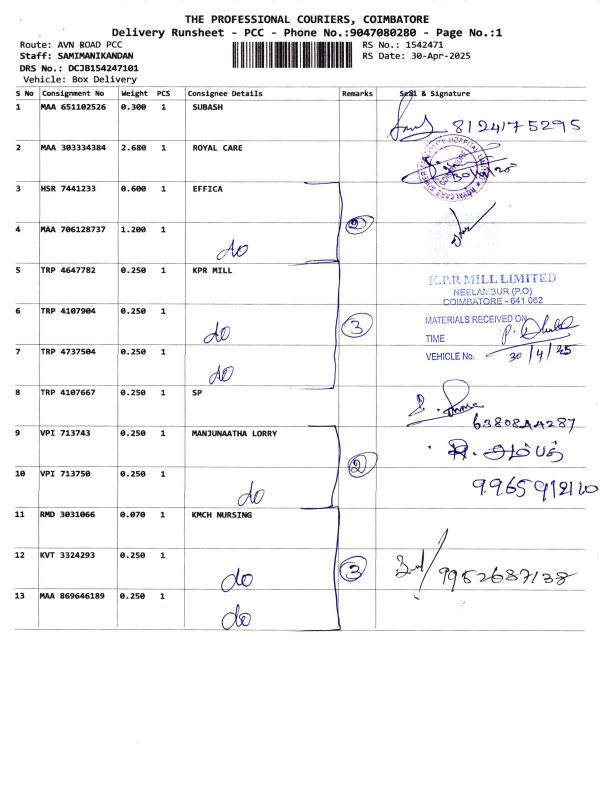 THE PROFESSIONAL COURIERS, COIMBATORE
Delivery Runsheet - PCC - Phone No.:9047080280 - Page No.:1
Route: AVN ROAD PCC
RS No.: 1542471
Staff: SAMIMANIKANDAN
RS Date: 30-Apr-2025
DRS No.: DCJB154247101
Vehicle: Box Delivery
S No Consignment No Weight PCS Consignee Details Remarks Seal & Signature
1 MAA 651102526 0.300 1 SUBASH
8124175295
2 MAA 303334384 2.680 1 ROYAL CARE
3 HSR 7441233 0.600 1 EFFICA
2
4 MAA 706128737 1.200 1
do
5 TRP 4647782 0.250 1 KPR MILL
K.P.R MILL LIMITED
NEELAMBUR (P.O)
COIMBATORE - 641 062
6 TRP 4107904 0.250 1
do
3
MATERIALS RECEIVED ON
TIME
7 TRP 4737504 0.250 1
do
VEHICLE No. 30/4/25
8 TRP 4107667 0.250 1 SP
9 VPI 713743 0.250 1 MANJUNAATHA LORRY
2
10 VPI 713750 0.250 1
do
11 RMD 3031066 0.070 1 KMCH NURSING
12 KVT 3324293 0.250 1
do
3
9952687138
13 MAA 869646189 0.250 1
do